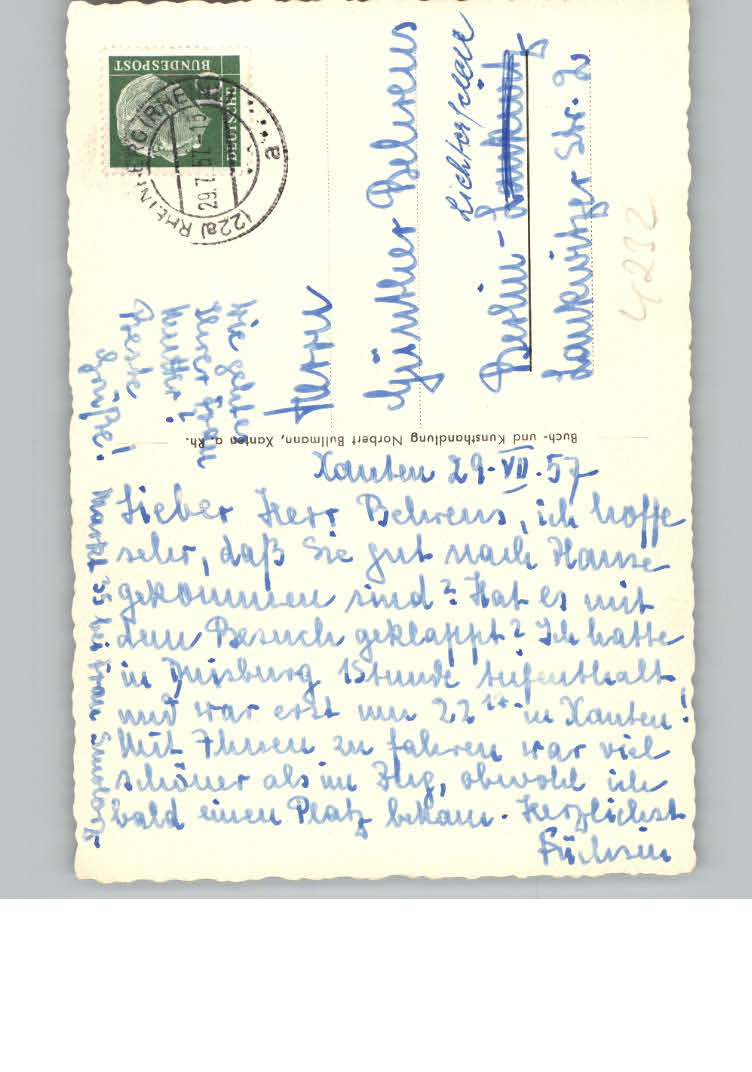 Xanten 29.VII.57
Lieber Herr Behrens, ich hoffe
sehr, daß Sie gut nach Hause
gekommen sind? Hat es mit
dem Besuch geklappt? Ich hatte
in Duisburg 1 Stunde Aufenthalt
und war erst um 22 in Xanten!
Mit Ihnen zu fahren war viel
schöner als im Zug, obwohl ich
bald einen Platz bekam. Herzlichst
Füchsin
Markt 35 bei Frau
Wie gehts
Ihrer Frau
Mutter?
Beste
Grüße!
Herrn
Günther Behrens
Lichterfelde
Berlin-
Lankwitzer Str. 2
4232
Buch- und Kunsthandlung Norbert Bullmann, Xanten a. Rh.
DEUTSCHE
BUNDESPOST
(22a) RHEINBERG (RHEINL)
29.7.57-15
a